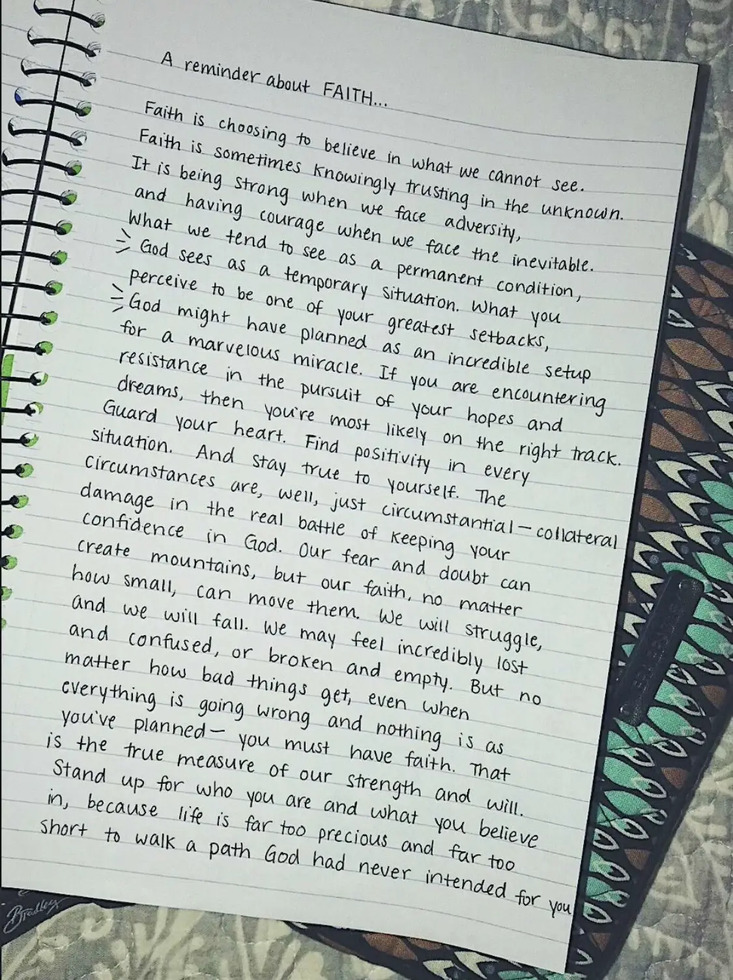 A reminder about FAITH...
Faith is choosing to believe in what we cannot see.
Faith is sometimes knowingly trusting in the unknown.
It is being strong when we face adversity,
and having courage when we face the inevitable.
What we tend to see as a permanent condition,
God sees as a temporary situation. What you
perceive to be one of your greatest setbacks,
God might have planned as an incredible setup
for a marvelous miracle. If you are encountering
resistance in the pursuit of your hopes and
dreams, then you're most likely on the right track.
Guard your heart. Find positivity in every
situation. And stay true to yourself. The
circumstances are, well, just circumstantial — collateral
damage in the real battle of keeping your
confidence in God. Our fear and doubt can
create mountains, but our faith, no matter
how small, can move them. We will struggle,
and we will fall. We may feel incredibly lost
and confused, or broken and empty. But no
matter how bad things get, even when
everything is going wrong and nothing is as
you've planned — you must have faith. That
is the true measure of our strength and will.
Stand up for who you are and what you believe
in, because life is far too precious and far too
short to walk a path God had never intended for you
Bradley